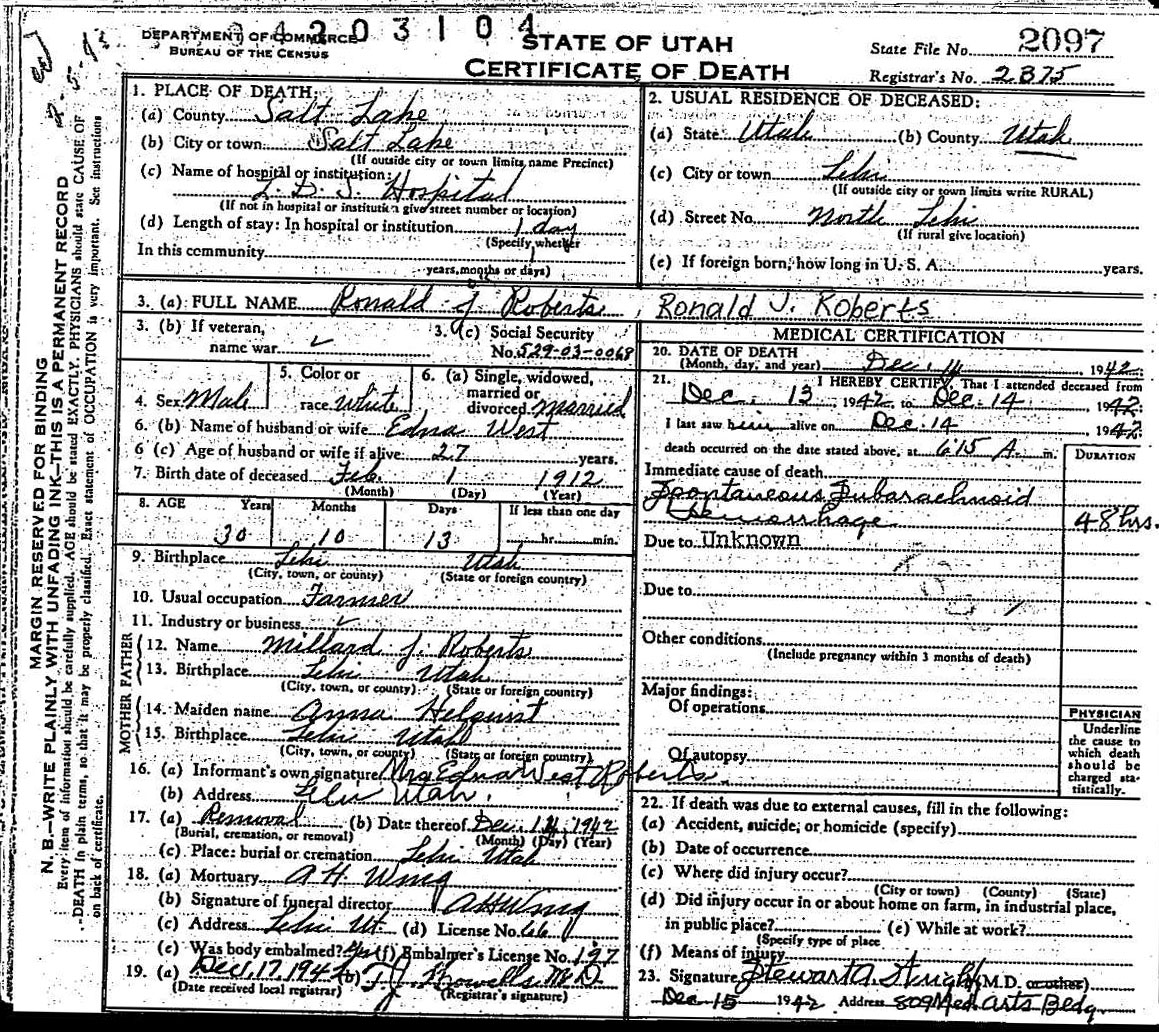 34203104
DEPARTMENT OF COMMERCE
BUREAU OF THE CENSUS
STATE OF UTAH
CERTIFICATE OF DEATH
State File No. 2097
Registrar's No. 2375
MARGIN RESERVED FOR BINDING
N. B.—WRITE PLAINLY WITH UNFADING INK—THIS IS A PERMANENT RECORD
Every item of information should be carefully supplied. AGE should be stated EXACTLY. PHYSICIANS should state CAUSE OF
DEATH in plain terms, so that it may be properly classified. Exact statement of OCCUPATION is very important. See instructions
on back of certificate.
1. PLACE OF DEATH:
(a) County Salt Lake
(b) City or town Salt Lake
(If outside city or town limits, name Precinct)
(c) Name of hospital or institution:
L. D. S. Hospital
(If not in hospital or institution give street number or location)
(d) Length of stay: In hospital or institution 1 day
(Specify whether
In this community
years, months or days)
2. USUAL RESIDENCE OF DECEASED:
(a) State Utah (b) County Utah
(c) City or town Lehi
(If outside city or town limits write RURAL)
(d) Street No. North Lehi
(If rural give location)
(e) If foreign born, how long in U. S. A. years.
3. (a) FULL NAME Ronald J. Roberts Ronald J. Roberts
3. (b) If veteran,
name war
3. (c) Social Security
No. 529-03-0068
4. Sex Male
5. Color or
race White
6. (a) Single, widowed,
married or
divorced married
6. (b) Name of husband or wife Edna West
6 (c) Age of husband or wife if alive 27 years.
7. Birth date of deceased Feb. 1 1912
(Month) (Day) (Year)
8. AGE Years Months Days If less than one day
30 10 13 hr. min.
9. Birthplace Lehi Utah
(City, town, or county) (State or foreign country)
10. Usual occupation Farmer
11. Industry or business
FATHER
12. Name Millard J. Roberts
13. Birthplace Lehi Utah
(City, town, or county) (State or foreign country)
MOTHER
14. Maiden name Anna Helquist
15. Birthplace Lehi Utah
(City, town, or county) (State or foreign country)
16. (a) Informant's own signature Mrs Edna West Roberts
(b) Address Lehi Utah.
17. (a) Removal (b) Date thereof Dec. 14, 1942
(Burial, cremation, or removal) (Month) (Day) (Year)
(c) Place: burial or cremation Lehi Utah
18. (a) Mortuary A H. Wing
(b) Signature of funeral director A H Wing
(c) Address Lehi Ut. (d) License No. 66
(e) Was body embalmed? Yes (f) Embalmer's License No. 197
19. (a) Dec. 17, 1942 (b) T. J. Howells M D
(Date received local registrar) (Registrar's signature)
MEDICAL CERTIFICATION
20. DATE OF DEATH
(Month, day, and year) Dec. 14 1942
21. I HEREBY CERTIFY, That I attended deceased from
Dec. 13, 1942, to Dec. 14, 1942.
I last saw him alive on Dec. 14 1942.
death occurred on the date stated above, at 6 15 A. m.
DURATION
Immediate cause of death
Spontaneous Subarachnoid
Hemorrhage 48 hrs.
Due to Unknown
Due to
Other conditions
(Include pregnancy within 3 months of death)
Major findings:
Of operations
Of autopsy
PHYSICIAN
Underline
the cause to
which death
should be
charged sta-
tistically.
22. If death was due to external causes, fill in the following:
(a) Accident, suicide, or homicide (specify)
(b) Date of occurrence
(c) Where did injury occur?
(City or town) (County) (State)
(d) Did injury occur in or about home on farm, in industrial place,
in public place? (e) While at work?
(Specify type of place
(f) Means of injury
23. Signature Stewart A. Wright (M.D. or other)
Dec 15 1942 Address 809 Med. Arts Bldg